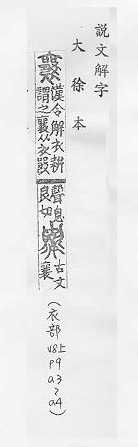 説文解字
大徐本
漢令解衣耕
謂之襄从衣𤕦
聲息
良切
古文
襄
(衣部 V8上 P9 a3~a4)